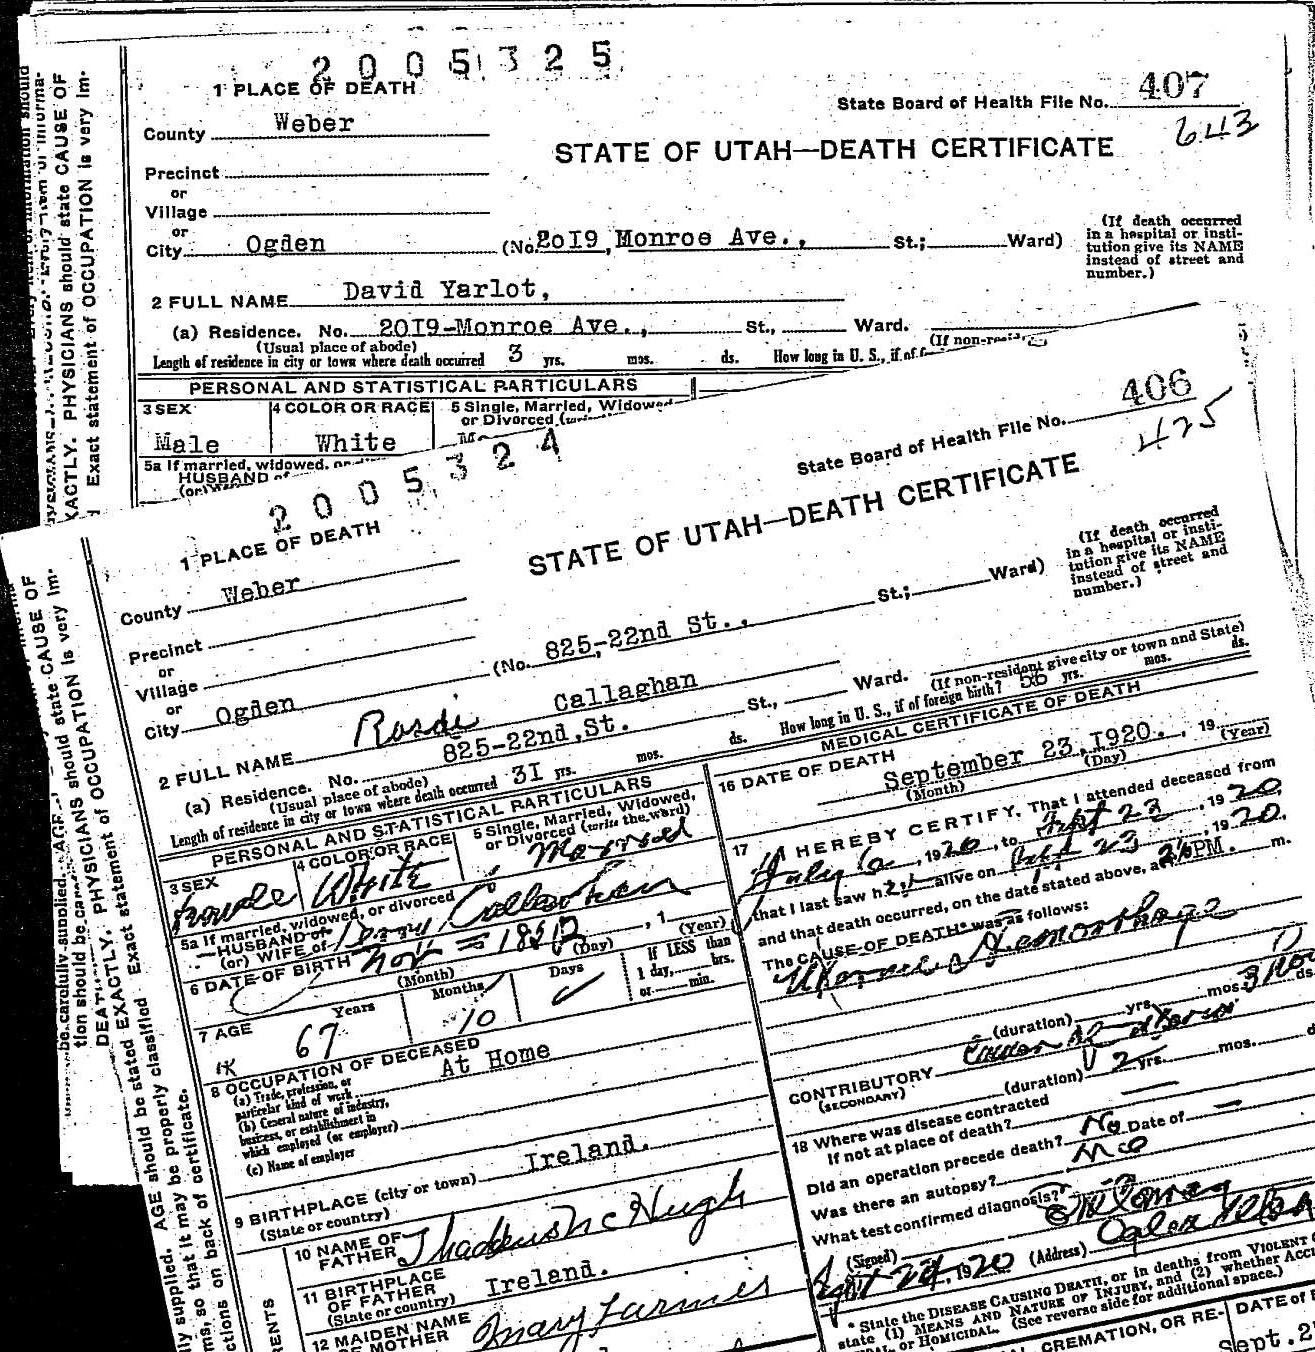 2005325
1 PLACE OF DEATH
State Board of Health File No. 407
643
County Weber
STATE OF UTAH—DEATH CERTIFICATE
Precinct
or
Village
or
City Ogden (No. 2019 Monroe Ave., St.; Ward)
(If death occurred
in a hospital or insti-
tution give its NAME
instead of street and
number.)
2 FULL NAME David Yarlot,
(a) Residence. No. 2019-Monroe Ave., St., Ward.
(Usual place of abode)
(If non-resid
Length of residence in city or town where death occurred 3 yrs. mos. ds. How long in U. S., if of f
PERSONAL AND STATISTICAL PARTICULARS
3 SEX
Male
4 COLOR OR RACE
White
5 Single, Married, Widowed
or Divorced
5a If married, widowed, or
HUSBAND of
(or)
XACTLY. PHYSICIANS should state CAUSE OF
Exact statement of OCCUPATION is very im-
2005324
1 PLACE OF DEATH
State Board of Health File No. 406
425
County Weber
STATE OF UTAH—DEATH CERTIFICATE
Precinct
or
Village
or
City Ogden (No. 825-22nd St., St.; Ward)
(If death occurred
in a hospital or insti-
tution give its NAME
instead of street and
number.)
2 FULL NAME Callaghan
(a) Residence. No. 825-22nd, St. St., Ward.
(Usual place of abode)
(If non-resident give city or town and State)
Length of residence in city or town where death occurred 31 yrs. mos. ds. How long in U. S., if of foreign birth? yrs. mos. ds.
PERSONAL AND STATISTICAL PARTICULARS
3 SEX
Female
4 COLOR OR RACE
White
5 Single, Married, Widowed,
or Divorced (write the word)
Married
5a If married, widowed, or divorced
HUSBAND of
(or) WIFE of
6 DATE OF BIRTH Nov , 1
(Month) (Day) (Year)
7 AGE
Years 67
Months 10
Days
If LESS than
1 day, hrs.
or min.
8 OCCUPATION OF DECEASED
(a) Trade, profession, or
particular kind of work At Home
(b) General nature of industry,
business, or establishment in
which employed (or employer)
(c) Name of employer
9 BIRTHPLACE (city or town) Ireland.
(State or country)
10 NAME OF
FATHER Thaddeus McHugh
11 BIRTHPLACE
OF FATHER
(State or country) Ireland.
12 MAIDEN NAME
OF MOTHER Mary
MEDICAL CERTIFICATE OF DEATH
16 DATE OF DEATH
September 23, 1920. , 19
(Month) (Day) (Year)
17 I HEREBY CERTIFY, That I attended deceased from
July 6, 1920, to Sept 23, 1920,
that I last saw her alive on Sept 23, 1920.
and that death occurred, on the date stated above, at PM. m.
The CAUSE OF DEATH* was as follows:
Hemorrhage
(duration) yrs. mos. ds.
CONTRIBUTORY
(SECONDARY)
(duration) 2 yrs. mos.
18 Where was disease contracted
if not at place of death?
Did an operation precede death? No Date of
Was there an autopsy? no
What test confirmed diagnosis?
(Signed)
Sept 24, 1920 (Address) Ogden Utah
* State the DISEASE CAUSING DEATH, or in deaths from VIOLENT
state (1) MEANS AND NATURE OF INJURY, and (2) whether ACC
or HOMICIDAL. (See reverse side for additional space.)
CREMATION, OR RE-
DATE of
Sept. 2
be carefully supplied. AGE
should state CAUSE OF
tion should be
DEATH
EXACTLY. PHYSICIANS should
Exact statement of OCCUPATION is very im-
AGE should be stated
so that it may be properly classified
on back of certificate.